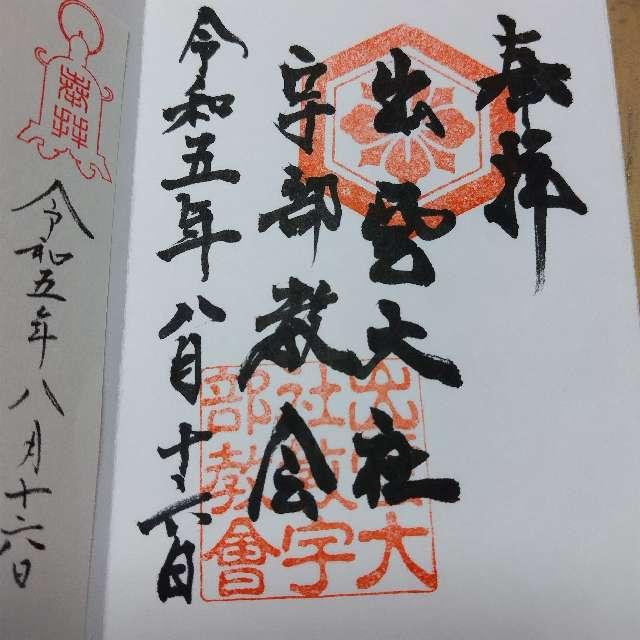 奉拝
出雲大社
宇部教会
令和五年八月十六日
出雲大
社教宇
部教會
令和五年八月十六日